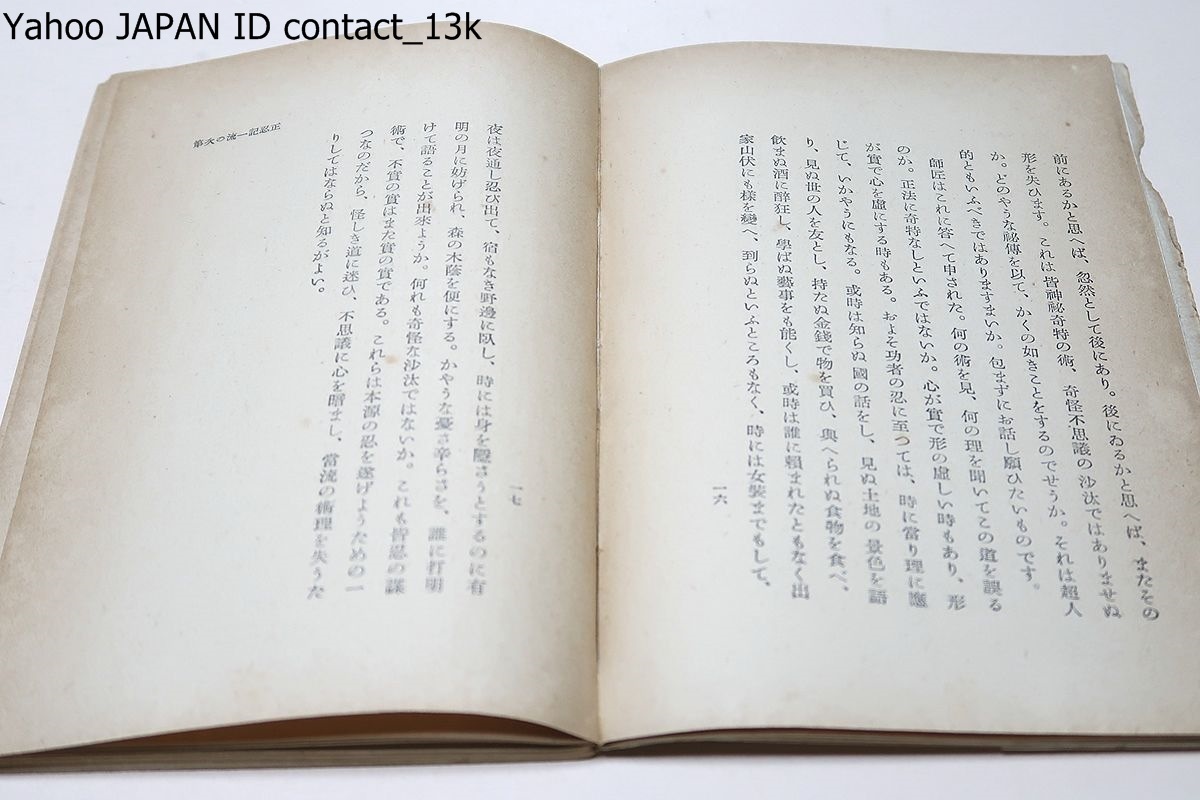 Yahoo JAPAN ID contact_13k
前にあるかと思へば、忽然として後にあり。後にゐるかと思へば、またその
形を失ひます。これは皆神祕奇特の術、奇怪不思議の沙汰ではありませぬ
か。どのやうな祕傳を以て、かくの如きことをするのでせうか。それは超人
的ともいふべきではありますまいか。包まずにお話し願ひたいものです。
師匠はこれに答へて申された。何の術を見、何の理を聞いてこの道を誤る
のか。正法に奇特なしといふではないか。心が實で形の虛しい時もあり、形
が實で心を虛にする時もある。およそ功者の忍に至つては、時に當り理に應
じて、いかやうにもなる。或時は知らぬ國の話をし、見ぬ土地の景色を語
り、見ぬ世の人を友とし、持たぬ金錢で物を買ひ、與へられぬ食物を食べ、
飲まぬ酒に醉狂し、學ばぬ藝事をも能くし、或時は誰に賴まれたともなく出
家山伏にも樣を變へ、到らぬといふところもなく、時には女裝までもして、
一六
夜は夜通し忍び出て、宿もなき野邊に臥し、時には身を隱さうとするのに有
明の月に妨げられ、森の木蔭を便にする。かやうな憂さ辛らさを、誰に打明
けて語ることが出來ようか。何れも奇怪な沙汰ではないか。これも皆忍の謀
術で、不實の實はまた實の實である。これらは本源の忍を遂げようための一
つなのだから、怪しき道に迷ひ、不思議に心を暗まし、當流の術理を失うた
りしてはならぬと知るがよい。
正忍記一流の次第
一七